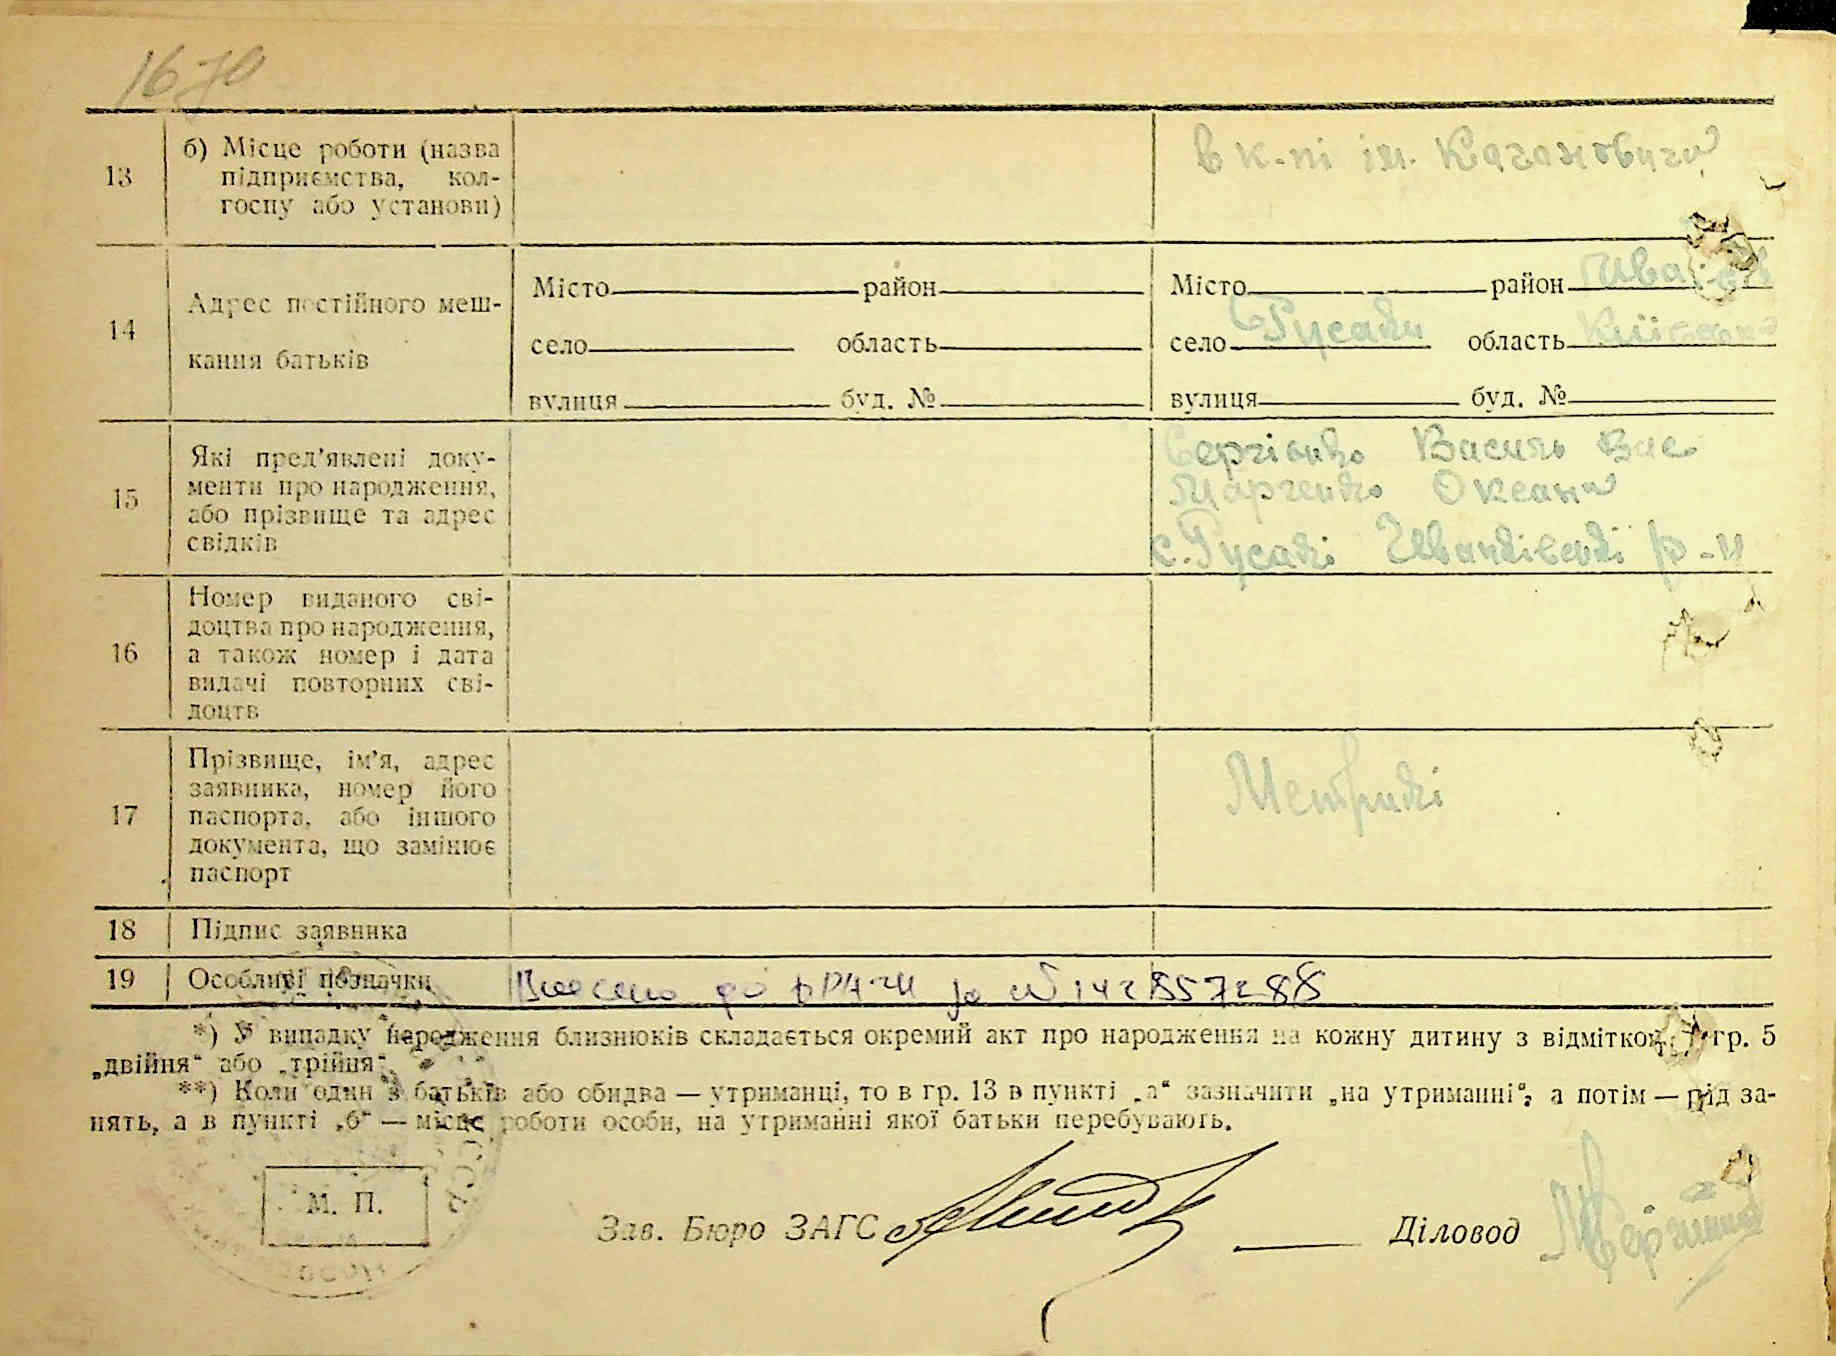 1670
13
б) Місце роботи (назва
підприємства, кол-
госпу або установи)
в к-пі ім. Кагановича
14
Адрес постійного меш-
кання батьків
Місто район
село область
вулиця буд. №
Місто район
село Русаки область Київська
вулиця буд. №
15
Які пред'явлені доку-
менти про народження,
або прізвище та адрес
свідків
Сергієнко Василь Вас
Марченко Оксана
с. Русакі Іванківські р-н
16
Номер виданого сві-
доцтва про народження,
а також номер і дата
видачі повторних сві-
доцтв
17
Прізвище, ім'я, адрес
заявника, номер його
паспорта, або іншого
документа, що замінює
паспорт
Метрики
18
Підпис заявника
19
Особливі позначки
Внесено до за №
*) У випадку народження близнюків складається окремий акт про народження на кожну дитину з відміткою гр. 5
„двійня“ або „трійня“.
**) Коли один з батьків або обидва — утриманці, то в гр. 13 в пункті „а“ зазначити „на утриманні“, а потім — рід за-
нять, а в пункті „б“ — місце роботи особи, на утриманні якої батьки перебувають.
М. П.
Зав. Бюро ЗАГС Діловод